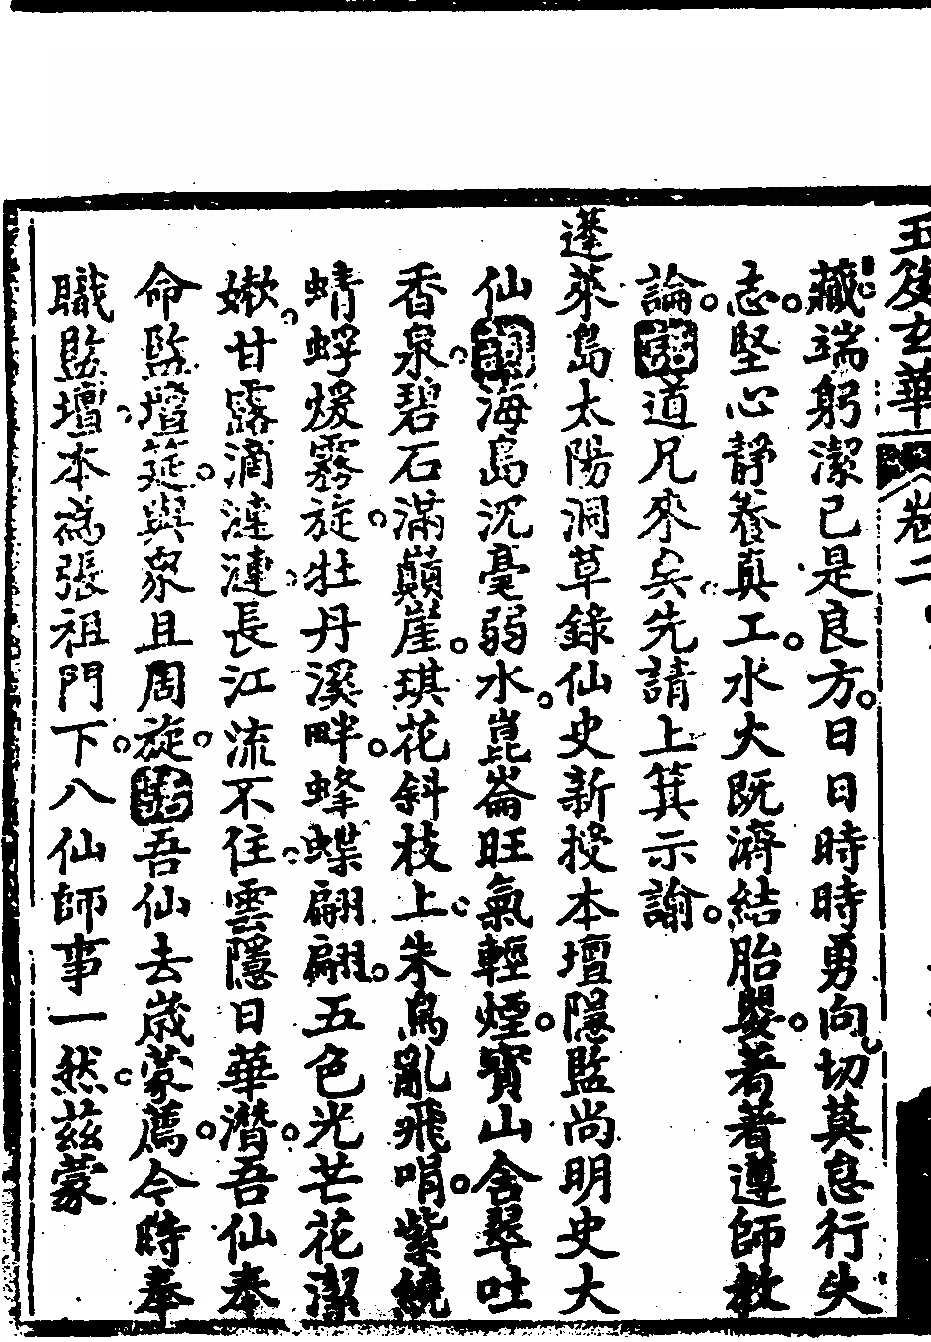 玉皇玄華 卷二
藏端躬潔己是良方日日時時勇向切莫息行失
志堅心靜養真工水火既濟結胎嬰著著遵師教
論話道兄來矣先請上箕示諭
蓬萊島太陽洞草錄仙史新授本壇隱監尚明史大
仙詩海島沉毫弱水崑崙旺氣輕煙寶山含翠吐
香泉碧石滿巔崖琪花斜枝上朱鳥亂飛啼紫繞
蜻蜉煖霧旋牡丹溪畔蜂蝶翩翩五色光芒花潔
嫩甘露滴漣漣長江流不住雲隱日華潛吾仙奉
命監壇莚與眾且周旋話吾仙去歲蒙薦今時奉
職監壇本為張祖門下八仙師事一然茲蒙